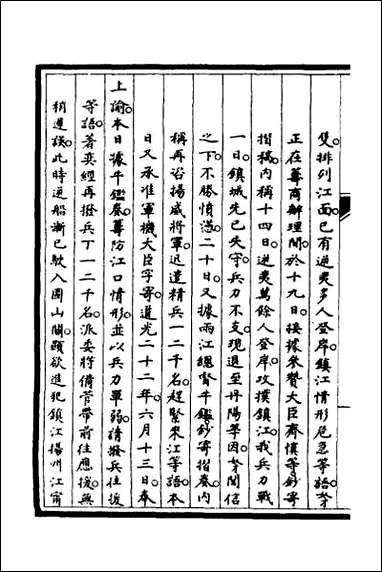 雙排列江面已有逆夷多人登岸鎮江情形危急等語等
正在籌商辦理間於十九日接據參贊大臣齊慎等鈔寄
摺稿內稱十四日逆夷萬餘人登岸攻撲鎮江我兵力戰
一日鎮城先已失守兵力不支現退至丹陽等因閱信
之下不勝憤懣二十日又據兩江總督牛鑑鈔寄摺奏內
稱再咨揚威將軍迅遣精兵一二千名趕緊來江等語本
日又承准軍機大臣字寄道光二十二年六月十三日奉
上諭本日據牛鑑奏籌防江口情形並以兵力單弱請撥兵往援
等語著奕經再撥兵丁一二千名派委將備管帶前往應援無
稍遲誤此時逆船漸已駛入圌山關顯欲進犯鎮江揚州江甯